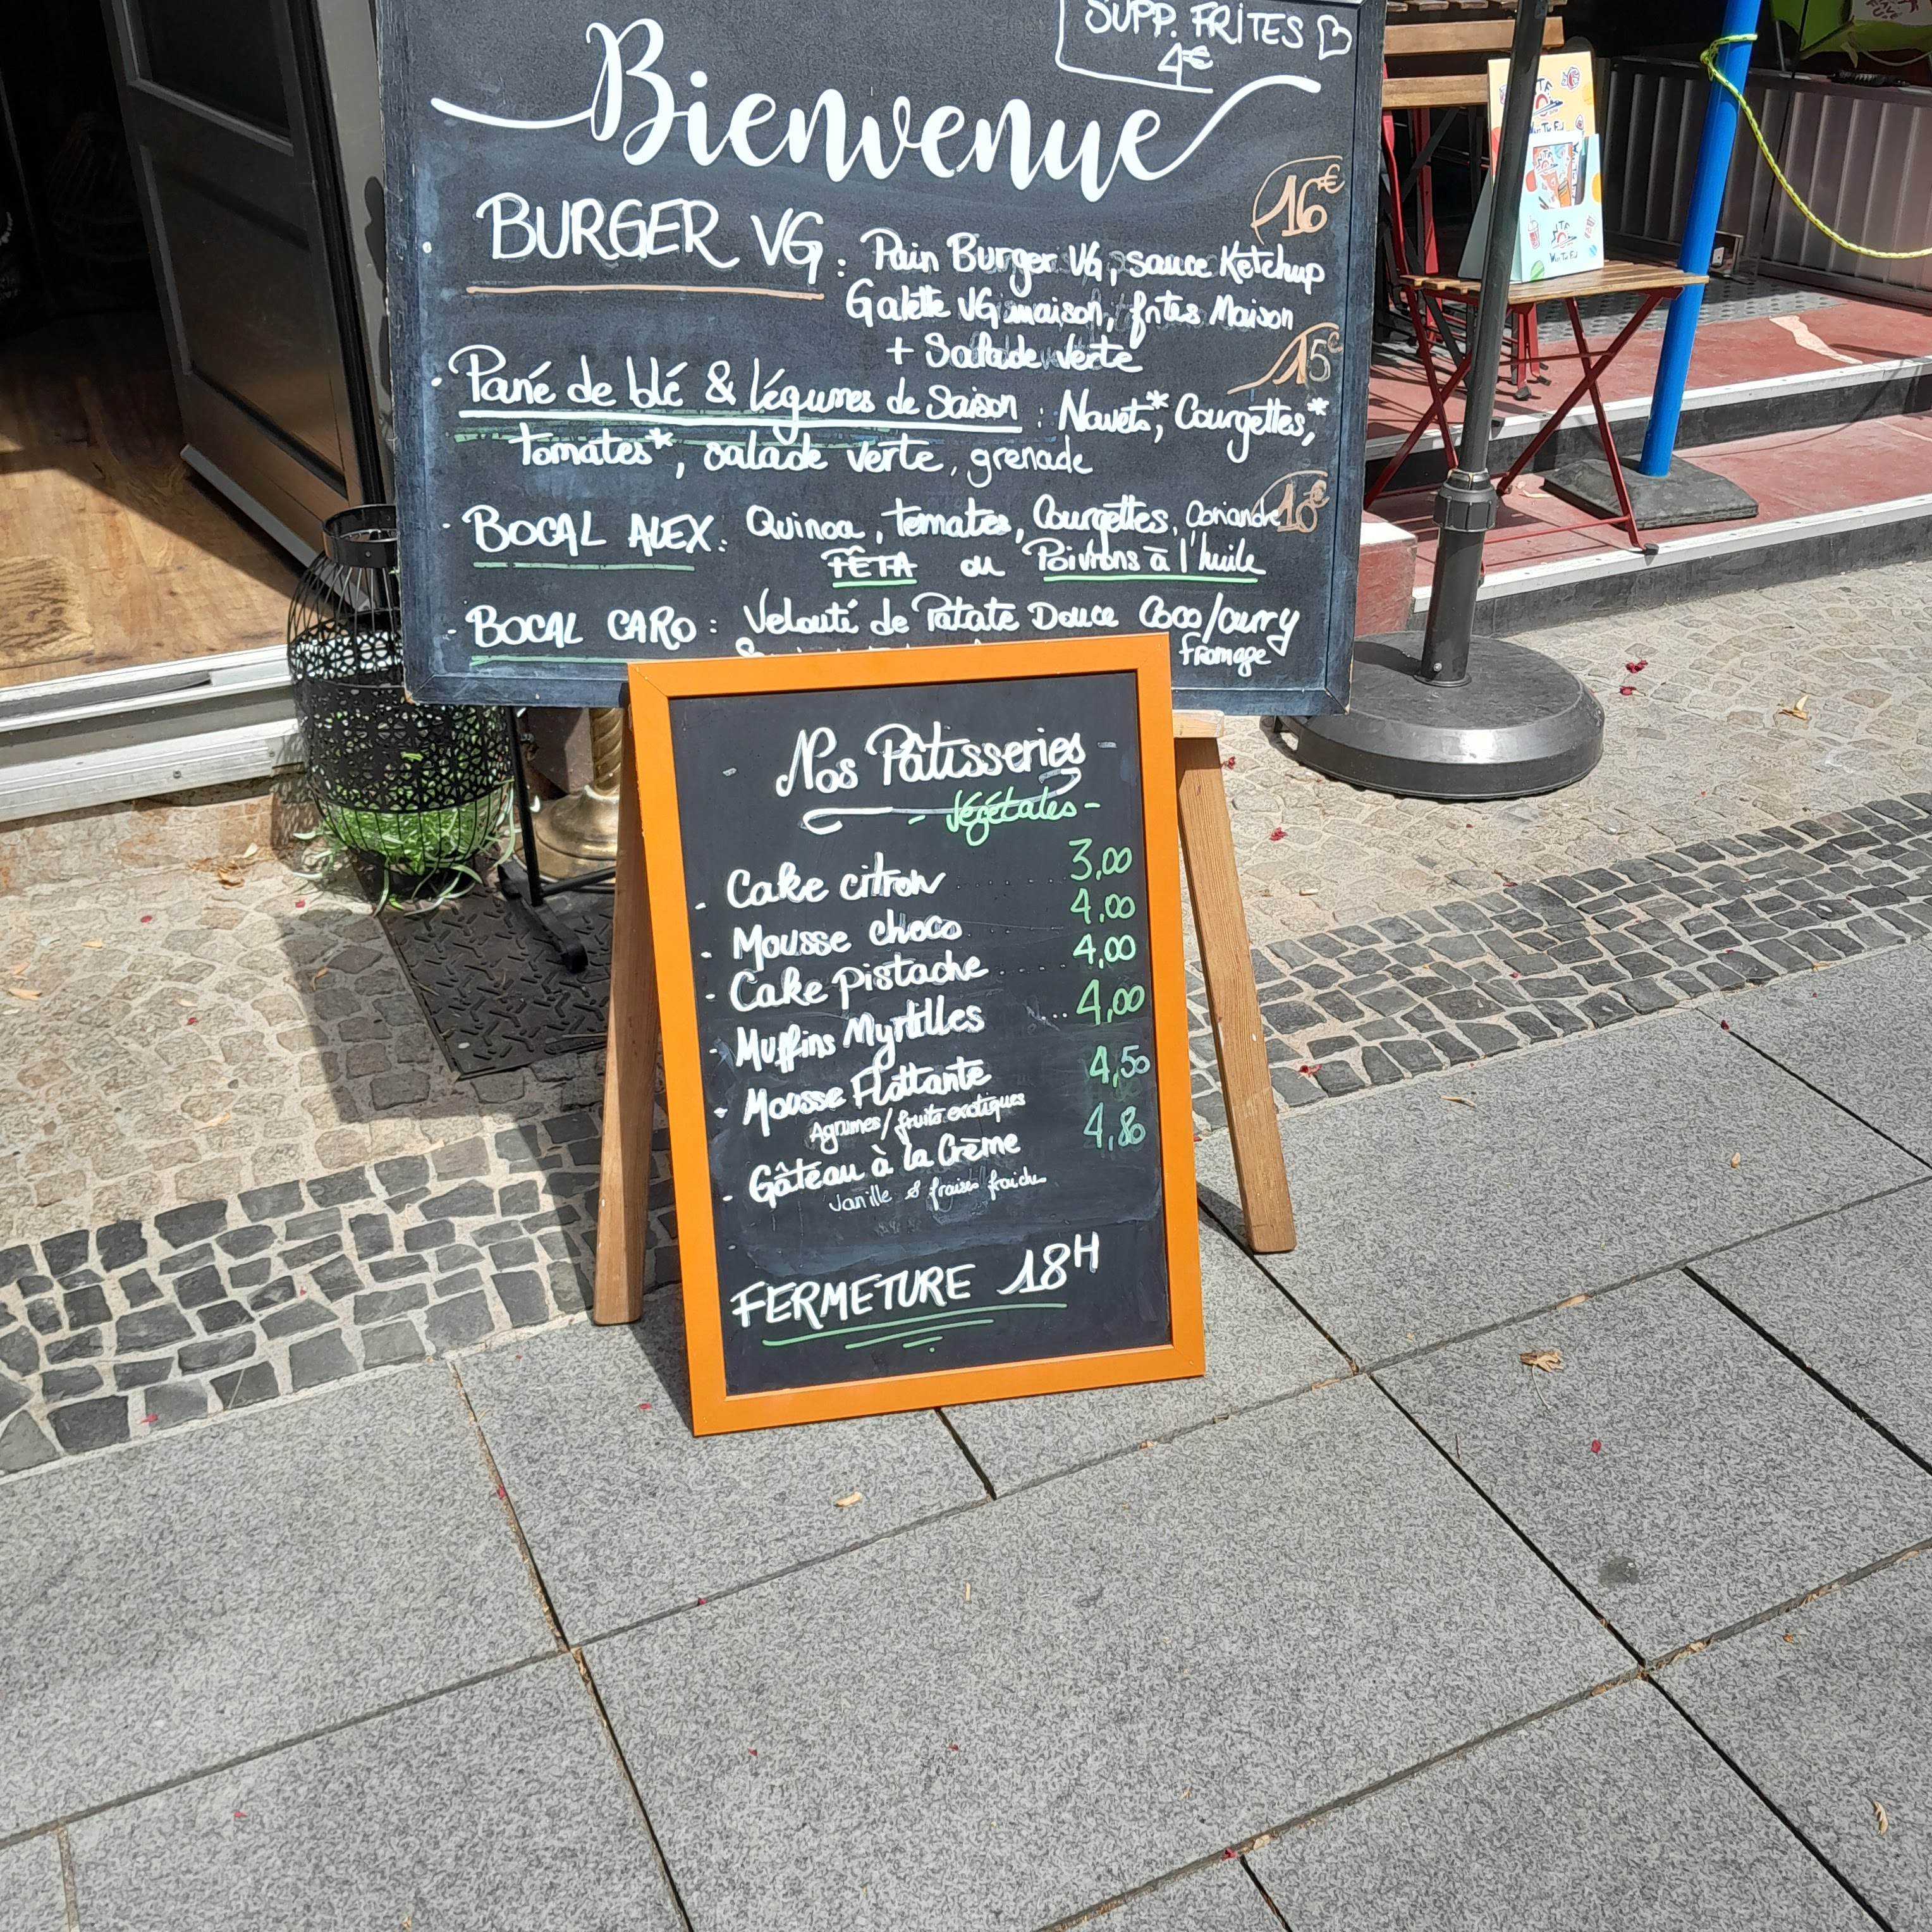 SUPP. FRITES
4€
Bienvenue
16€
BURGER VG : Pain Burger VG, sauce Ketchup
Galette VG maison, frites Maison
+ Salade verte
15€
- Pané de blé & légumes de Saison : Navets*, Courgettes,*
tomates*, salade verte, grenade
- BOCAL ALEX : Quinoa, tomates, Courgettes, Coriandre
FÊTA ou Poivrons à l'huile
- BOCAL CARO : Velouté de Patate Douce Coco/curry
fromage
Nos Pâtisseries
- Végétales -
- Cake citron ........ 3,00
- Mousse choco ........ 4,00
- Cake pistache ........ 4,00
- Muffins Myrtilles ... 4,00
- Mousse Flottante 4,50
Agrumes/fruits exotiques
- Gâteau à la Crème 4,80
Vanille & fraises fraiches
FERMETURE 18H